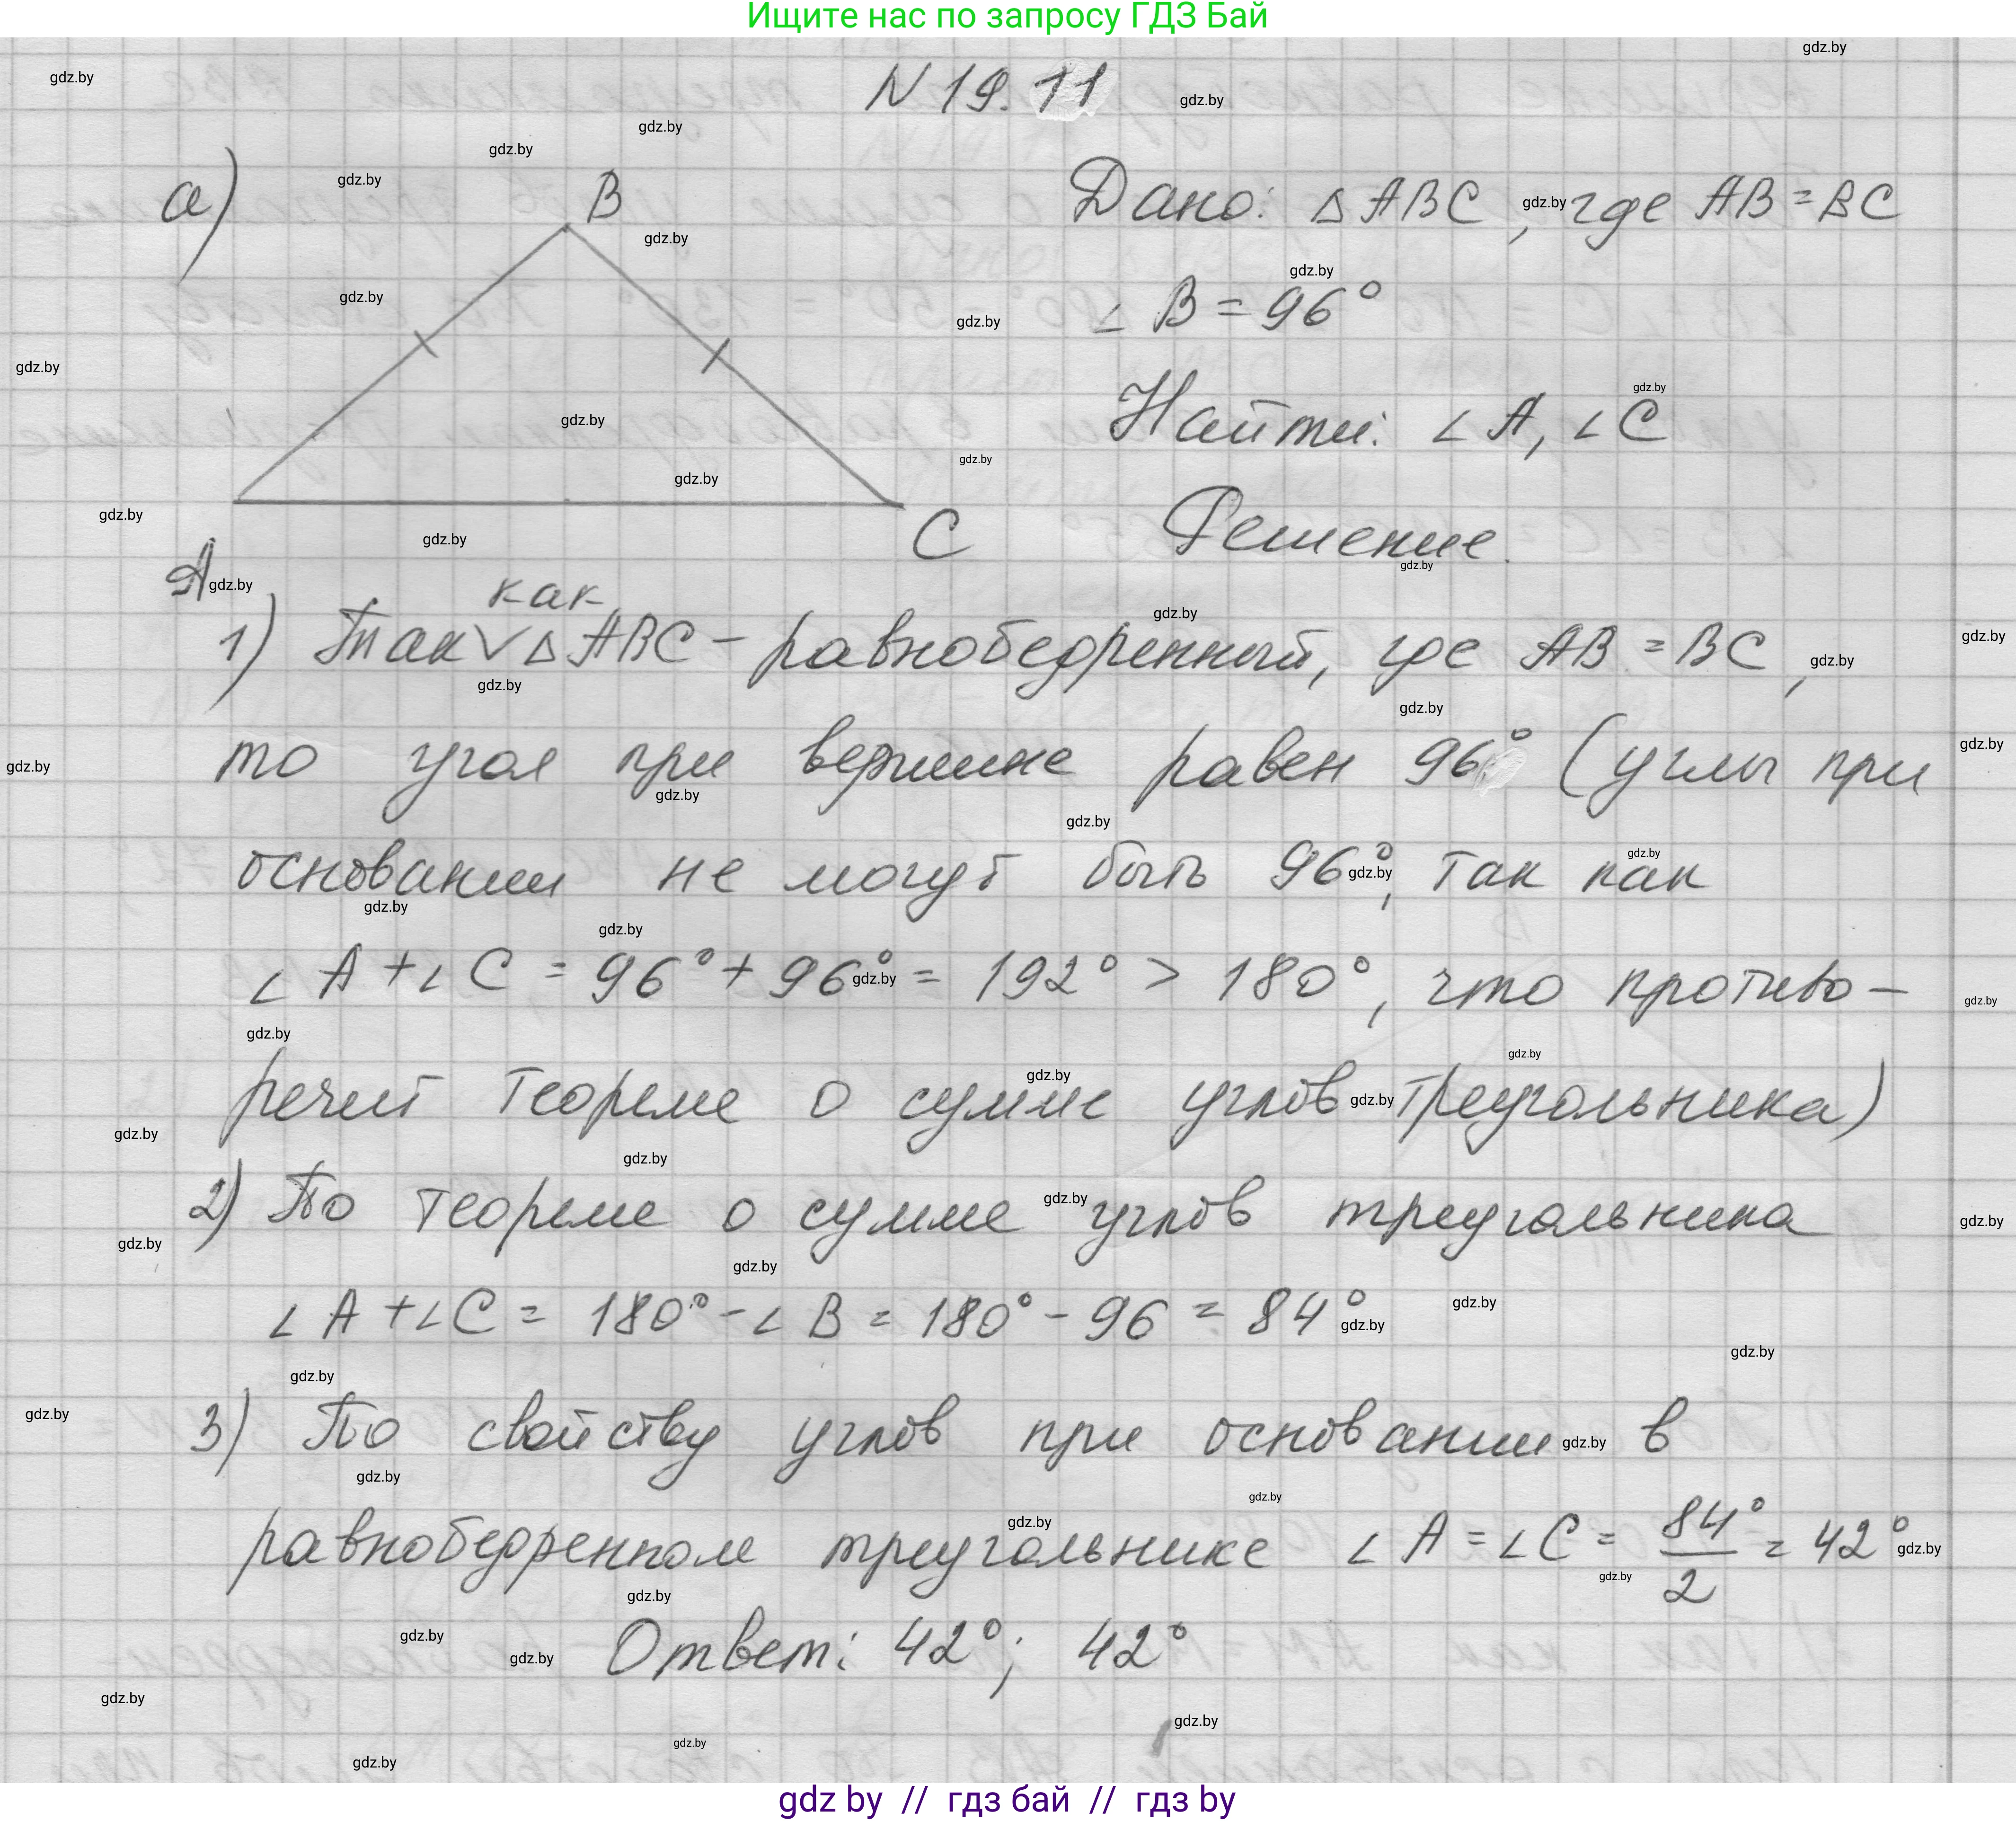 Ищите нас по запросу ГДЗ Бай
N 19.11
а)
B
A
C
Дано: △ ABC, где AB = BC
∠ B = 96°
Найти: ∠ A, ∠ C
Решение.
как
1) Так ∨ △ ABC – равнобедренный, где AB = BC,
то угол при вершине равен 96° (углы при
основании не могут быть 96°, так как
∠ A + ∠ C = 96° + 96° = 192° > 180°, что противо-
речит теореме о сумме углов треугольника)
2) По теореме о сумме углов треугольника
∠ A + ∠ C = 180° - ∠ B = 180° - 96 = 84°
3) По свойству углов при основании в
равнобедренном треугольнике ∠ A = ∠ C = 84°/2 = 42°
Ответ: 42°; 42°
gdz by // гдз бай // гдз by